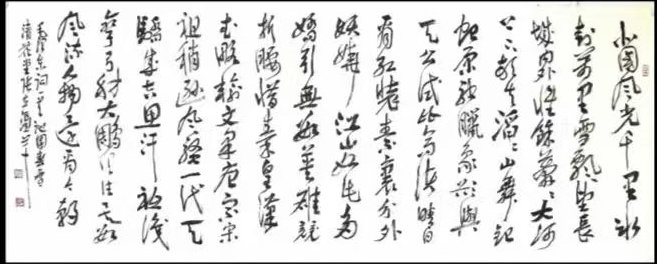 北國风光千里冰
封万里雪飘望长
城内外惟餘莽莽大河
上下顿失滔滔山舞銀
蛇原驰臘象欲與
天公试比高须晴日
看红装素裹分外
妖娆江山如此多
娇引無數英雄競
折腰惜秦皇漢
武略输文采唐宗宋
祖稍逊风骚一代天
驕成吉思汗只识
弯弓射大鵰俱往矣数
风流人物還看今朝
毛泽东词一首沁园春雪